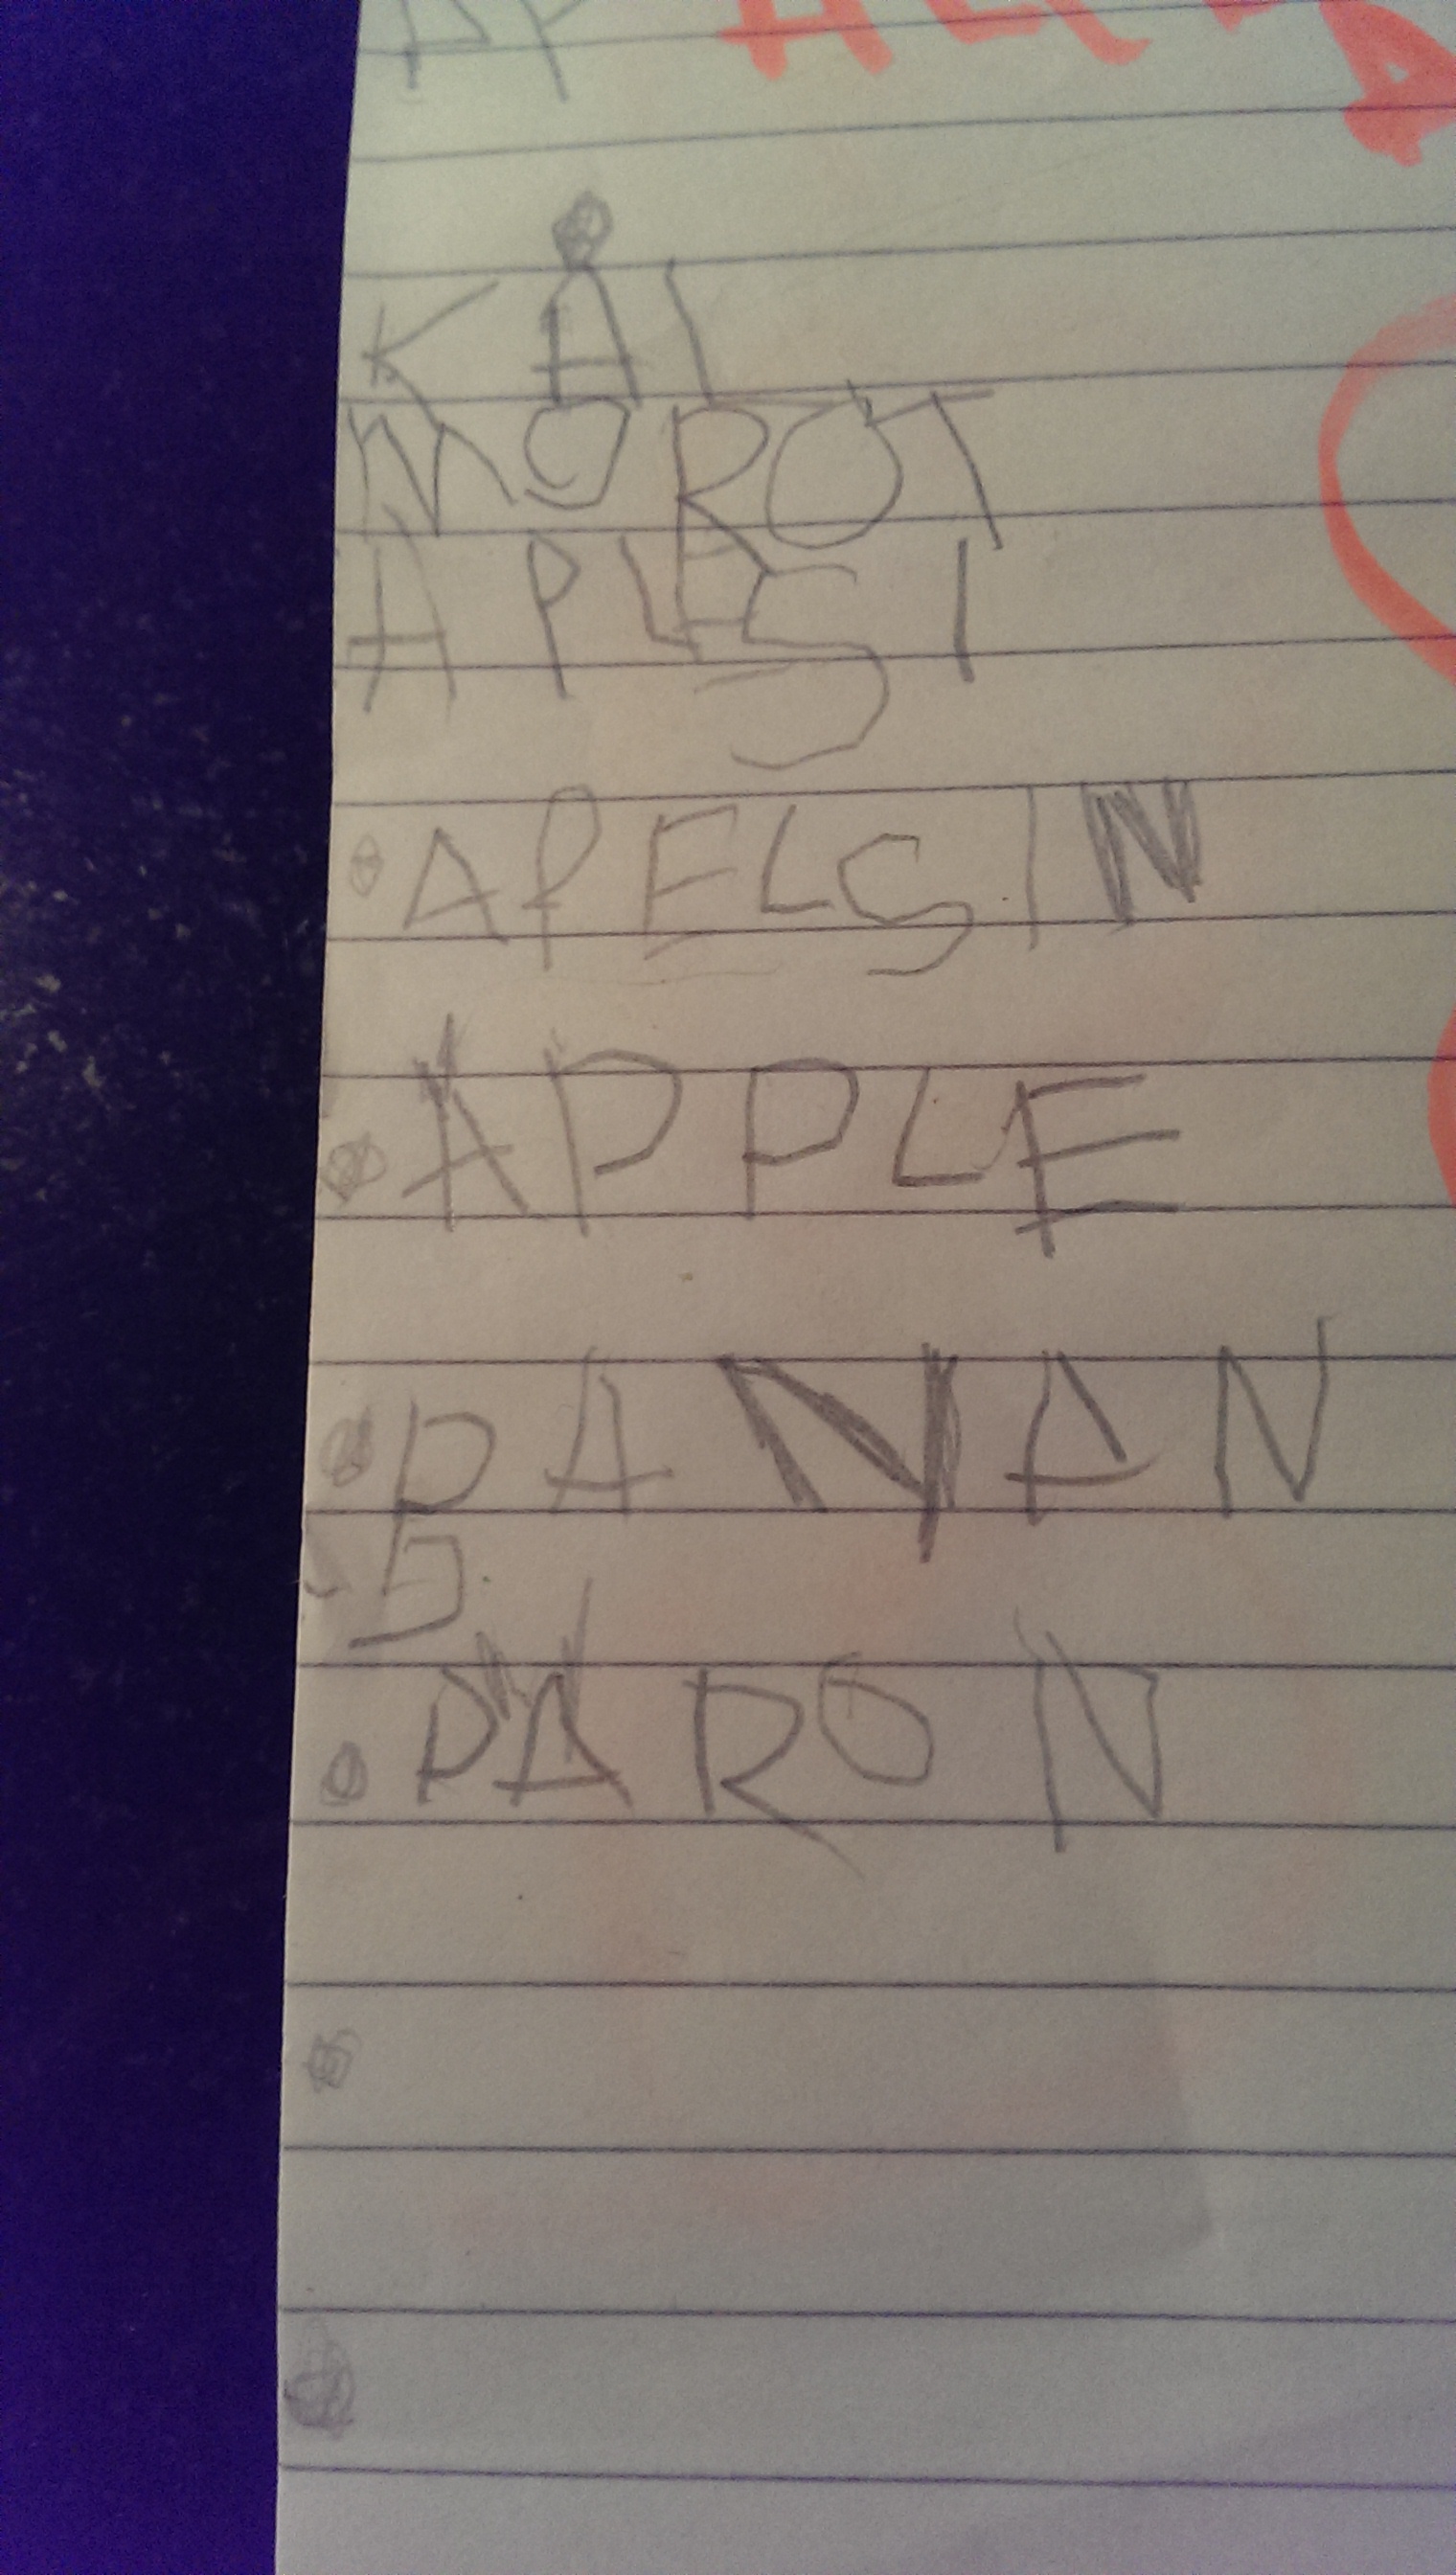 KÅL
MOROT
APLESI
APELSIN
ÄPPLE
BANAN
PÄRON